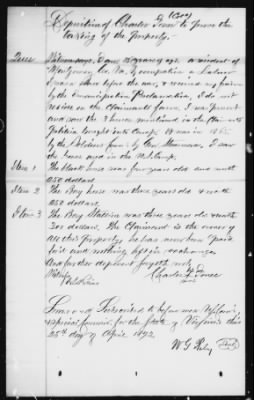 (Coe)
Deposition of Charles Ponee to prove the
taking of the Property.
Quee Witness says, I am 28 years of age a resident of
Montgomery Co. Va, by occupation a Labor
I was slave before the war, & received my freedom
by the Emancipation Proclamation, I do not
reside on the Claimants farm. I was present
and saw the 3 horses mentioned in the Claimants
Petition brought into Camp. It was in 1865
by the Soldiers from by Gen Stoneman, I saw
the horses and in the Camp.
Item 1 The black horse was four years old and worth
250 dollars.
Item 2 The Bay horse was three years old & worth
250 dollars
Item 3 The Bay Stallion was three years old & worth
300 dollars. The Claimant is the owner of
all this property he has never been paid
for it and nothing left in exchange.
And further deponent sayeth not.
Charles Ponee
Sworn and Subscribed to before me
Special Commr for the State of Virginia this
25th day of April 1872.
W G Riley